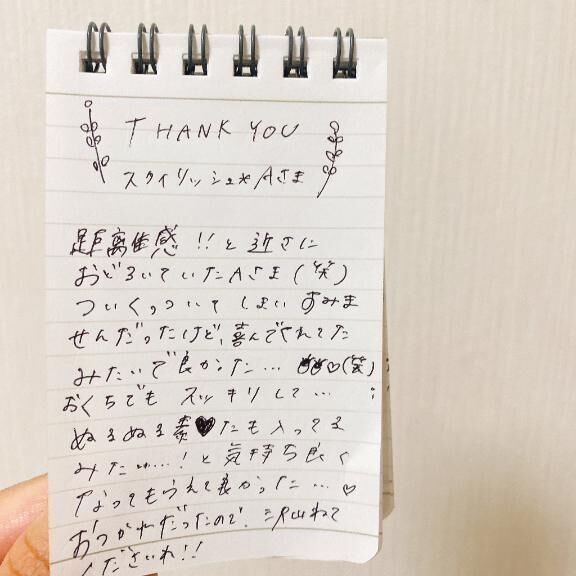 THANK YOU
スタイリッシュ*Aさま
距離感!!と近さに
おどろいていたAさま(笑)
ついくっついてしまいすみま
せんだったけど、喜んでくれてた
みたいで良かった…♡(笑)
おくちでもスッキリして…
ぬるぬる素♥たも入ってる
みたい…!と気持ち良く
なってもらえて良かった…♡
おつかれだったので、沢山ねて
くださいね!!